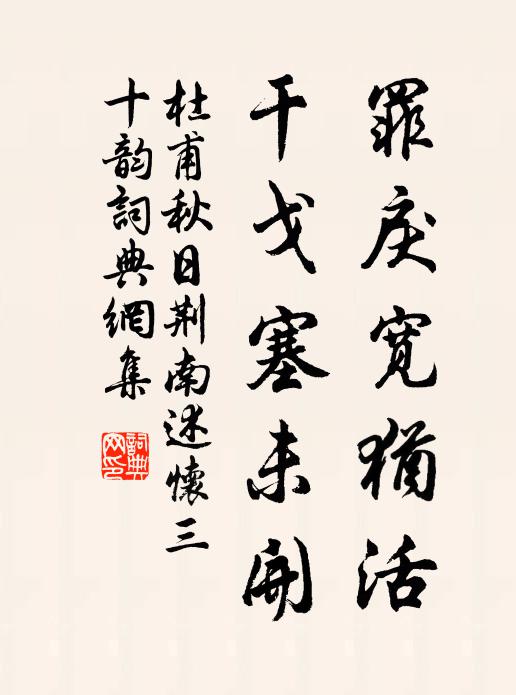 罪戾宽猶活
干戈塞未開
杜甫秋日荆南述懷三
十韵詞典網集
詞典
网印